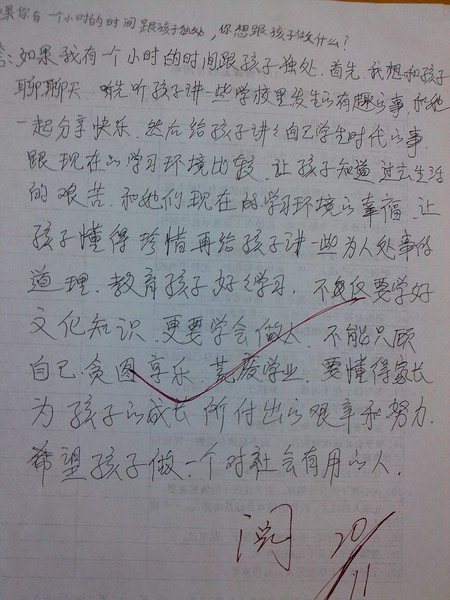 果你有一个小时的时间跟孩子独处，你想跟孩子做什么？
答：如果我有一个小时的时间跟孩子独处。首先，我想和孩子
聊聊天。听孩子讲一些学校里发生的有趣的事，和她
一起分享快乐。然后给孩子讲讲自己学生时代的事，
跟现在的学习环境比较，让孩子知道过去生活
的艰苦，和她们现在的学习环境的幸福，让
孩子懂得珍惜再给孩子讲一些为人处事的
道理，教育孩子好好学习，不仅仅要学好
文化知识，更要学会做人，不能只顾
自己，贪图享乐，荒废学业，要懂得家长
为孩子的成长所付出的艰辛和努力，
希望孩子做一个对社会有用的人。
阅 20/11